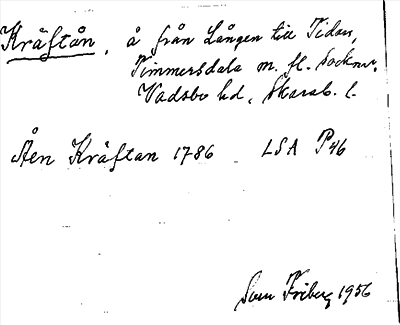 Kräftån, å från Lången till Tidan,
Timmersdala m. fl. socknar,
Vadsbo hd, Skarab. l.
Åen Kräftan 1786 LSA P46
Sven Friberg 1956